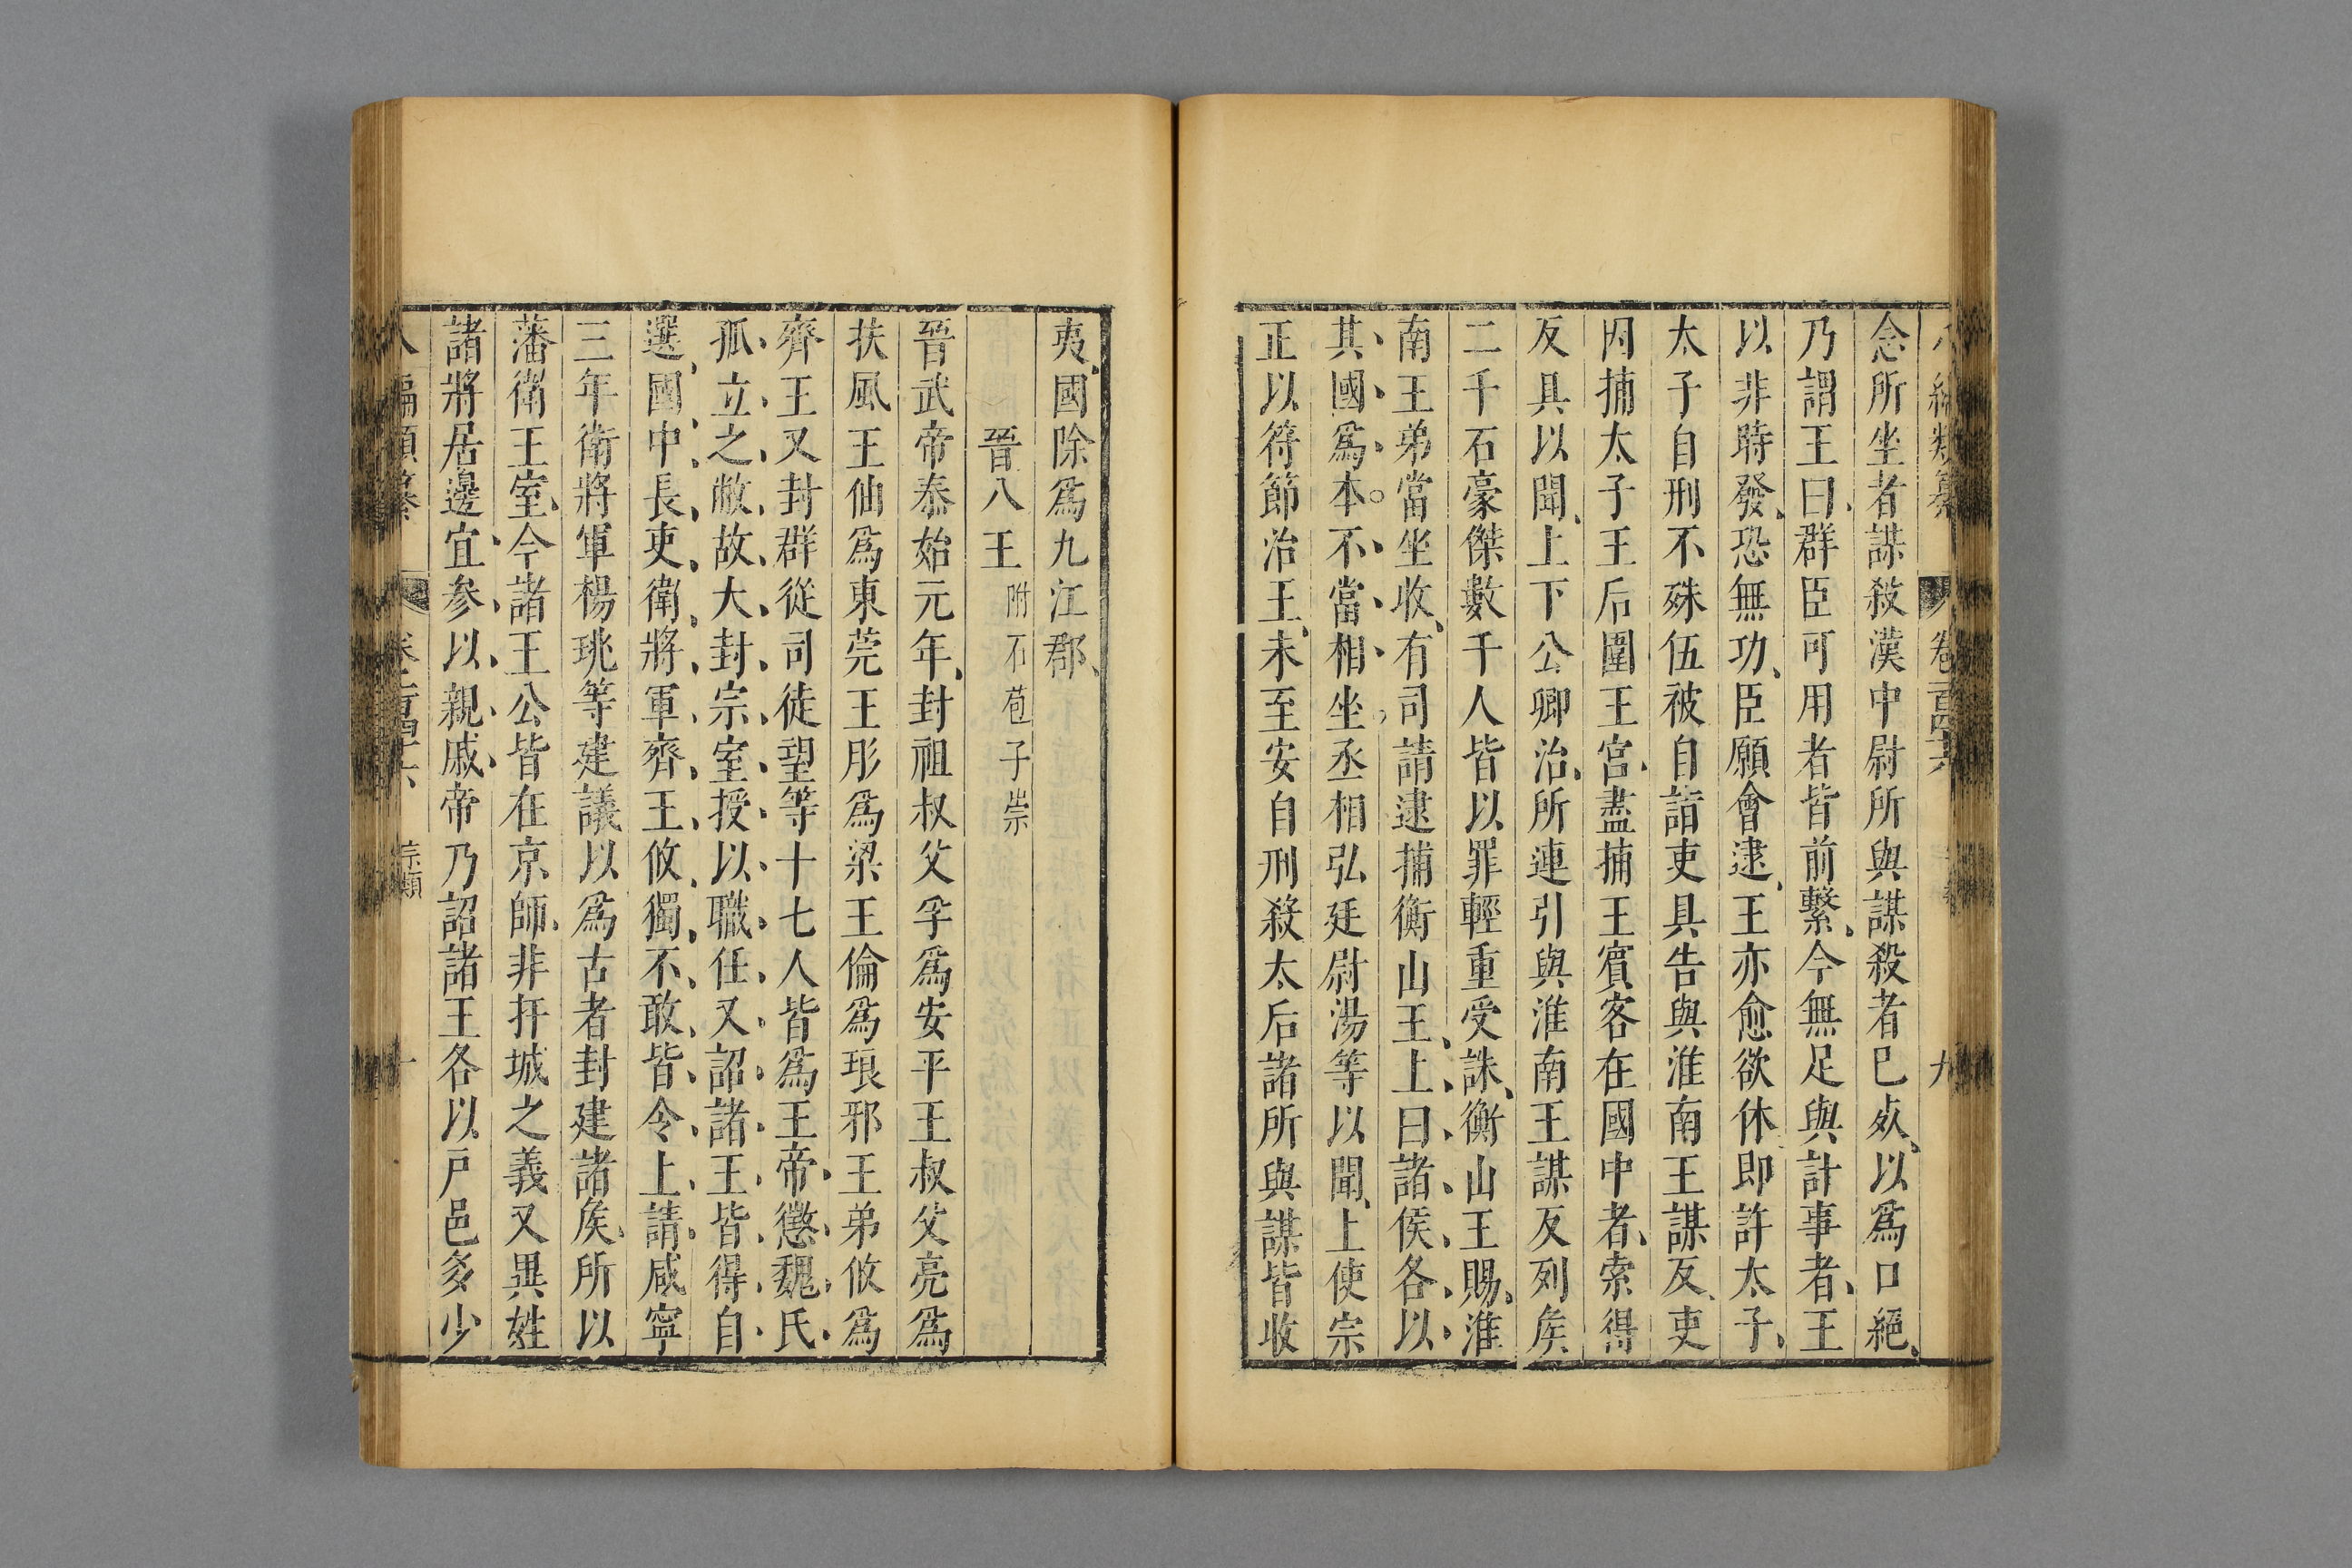 編類纂 卷一百四十六 九
念所坐者謀殺漢中尉所與謀殺者已死以爲口絕
乃謂王曰群臣可用者皆前繫今無足與計事者王
以非時發恐無功臣願會逮王亦愈欲休即許太子
太子自刑不殊伍被自詣吏具告與淮南王謀反吏
因捕太子王后圍王宮盡捕王賓客在國中者索得
反具以聞上下公卿治所連引與淮南王謀反列矦
二千石豪傑數千人皆以罪輕重受誅衡山王賜淮
南王弟當坐收有司請逮捕衡山王上曰諸侯各以
其國爲本不當相坐丞相弘廷尉湯等以聞上使宗
正以符節治王未至安自刑殺太后諸所與謀皆收
夷國除爲九江郡
晉八王 附石苞子崇
晉武帝泰始元年封祖叔父孚爲安平王叔父亮爲
扶風王伷爲東莞王肜爲梁王倫爲琅邪王弟攸爲
齊王又封群從司徒望等十七人皆爲王帝懲魏氏
孤立之敝故大封宗室授以職任又詔諸王皆得自
選國中長吏衛將軍齊王攸獨不敢皆令上請咸寧
三年衛將軍楊珧等建議以爲古者封建諸矦所以
藩衛王室今諸王公皆在京師非扞城之義又異姓
諸將居邊宜參以親戚帝乃詔諸王各以戶邑多少
八編類纂 卷一百四十六 宗類 十